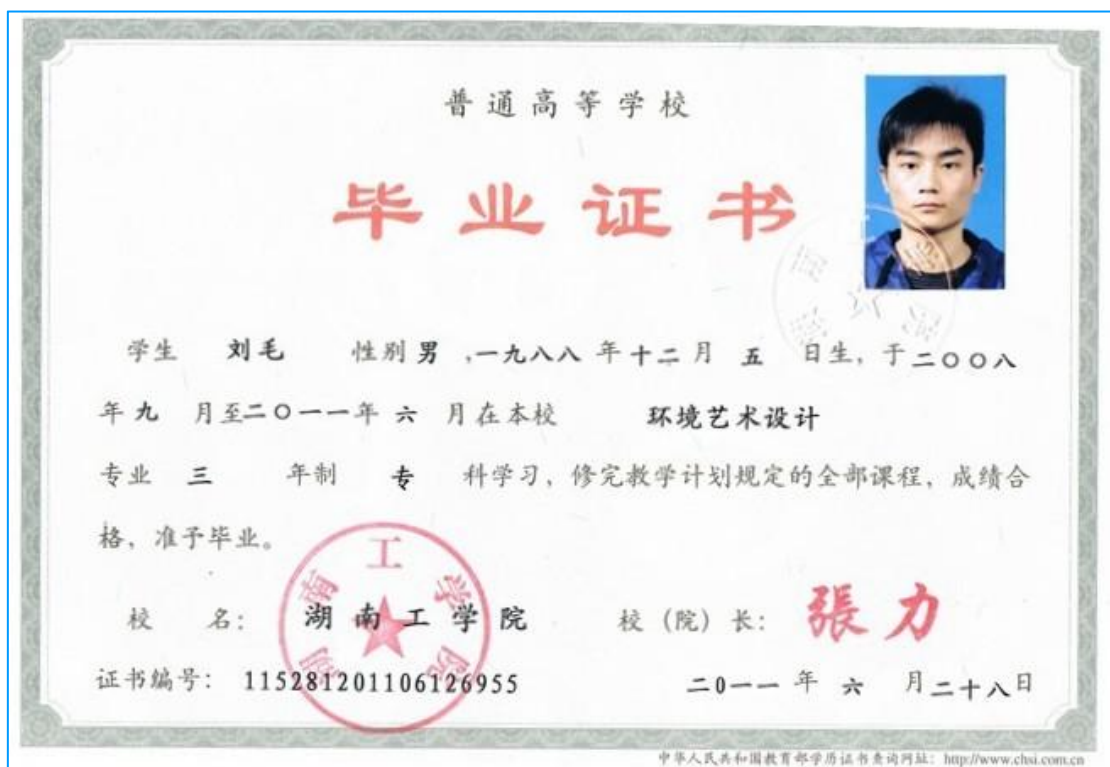 普通高等学校
毕业证书
学生 刘毛 性别 男 ,一九八八 年 十二 月 五 日生, 于 二〇〇八
年 九 月至 二〇一一 年 六 月在本校 环境艺术设计
专业 三 年制 专 科学习, 修完教学计划规定的全部课程, 成绩合
格, 准予毕业。
湖南工学院
校 名: 湖南工学院 校 (院) 长: 張力
证书编号: 115281201106126955 二0一一 年 六 月 二十八 日
中华人民共和国教育部学历证书查询网址: http://www.chsi.com.cn